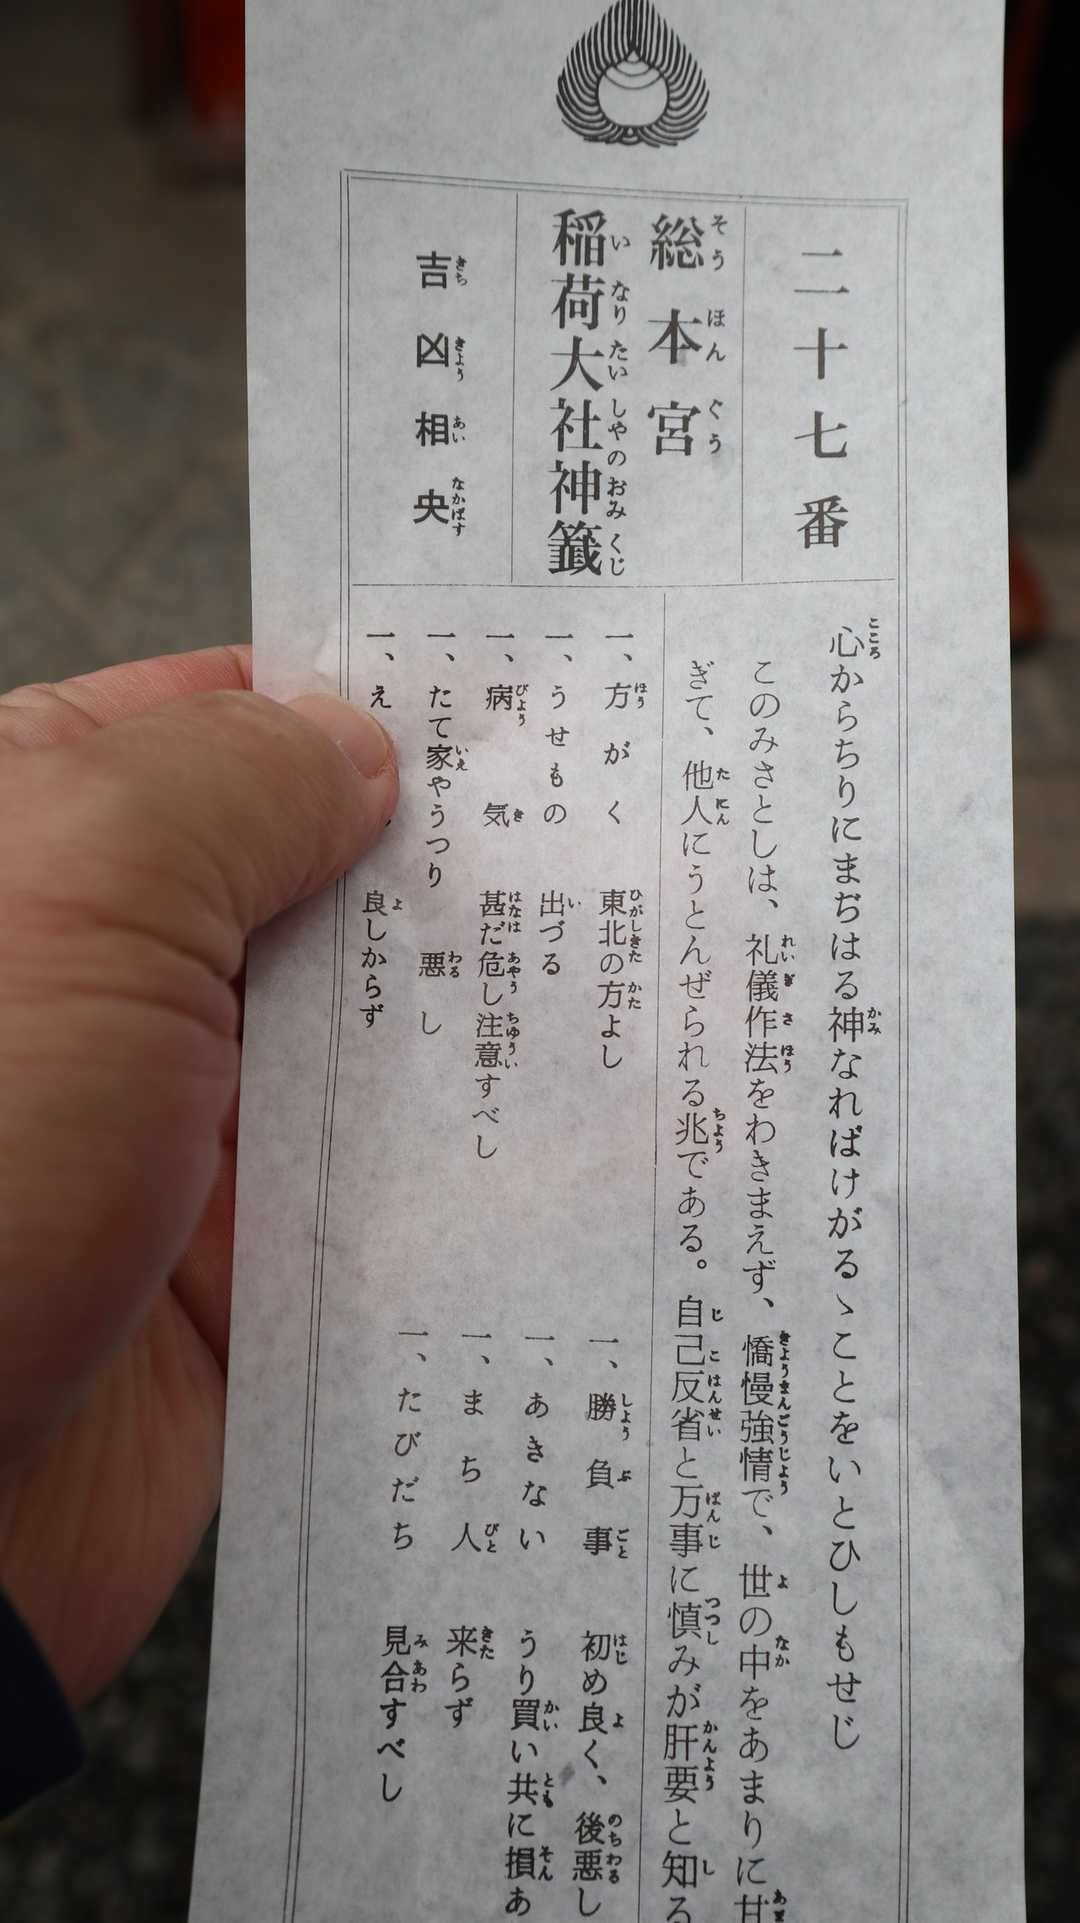 二十七番
総本宮
そうほんぐう
稲荷大社神籤
いなりたいしやのおみくじ
吉凶相央
きちきようあいなかばす
心からちりにまぢはる神なればけがるゝことをいとひしもせじ
このみさとしは、礼儀作法をわきまえず、憍慢強情で、世の中をあまりに甘
ぎて、他人にうとんぜられる兆である。自己反省と万事に慎みが肝要と知る
一、方がく 東北の方よし
一、うせもの 出づる
一、病気 甚だ危し注意すべし
一、たて家やうつり 悪し
一、え 良しからず
一、勝負事 初め良く、後悪し
一、あきない うり買い共に損あ
一、まち人 来らず
一、たびだち 見合すべし